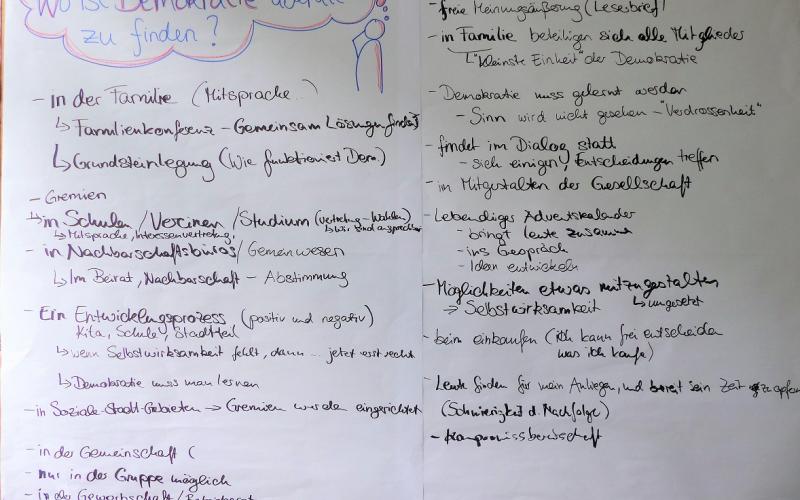 Wo ist Demokratie überall
zu finden?
- in der Familie (Mitsprache..)
↳ Familienkonferenz - Gemeinsam Lösungen finden
↳ Grundsteinlegung (Wie funktioniert Dem.)
- Gremien
↳ in Schulen/Vereinen/Studium (Vertretung - Wahlen)
↳ Mitsprache, Interessenvertretung
↳ Wir sind ansprechbar
- in Nachbarschaftsbüros/Gemeinwesen
↳ Im Beirat, Nachbarschaft - Abstimmung
- Ein Entwicklungsprozess (positiv und negativ)
Kita, Schule, Stadtteil
↳ wenn Selbstwirksamkeit fehlt, dann ... jetzt erst recht
↳ Demokratie muss man lernen
- in Soziale-Stadt-Gebieten → Gremien werden eingerichtet
- in der Gemeinschaft (
- nur in der Gruppe möglich
- in der Gewerkschaft/Betriebsrat
- freie Meinungsäußerung (Leserbrief)
- in Familie beteiligen sich alle Mitglieder
↳ "kleinste Einheit" der Demokratie
- Demokratie muss gelernt werden
- Sinn wird nicht gesehen - "Verdrossenheit"
- findet im Dialog statt
- sich einigen, Entscheidungen treffen
- im Mitgestalten der Gesellschaft
- Lebendiger Adventskalender
- bringt Leute zusamm
- ins Gespräch
- Ideen entwickeln
- Möglichkeiten etwas mitzugestalten
→ Selbstwirksamkeit ↳ umgesetzt
- beim einkaufen (ich kann frei entscheiden
was ich kaufe)
- Leute finden für mein Anliegen, und bereit sein Zeit zu opfern
(Schwierigkeit d. Nachfolge)
- Kompromissbereitschaft